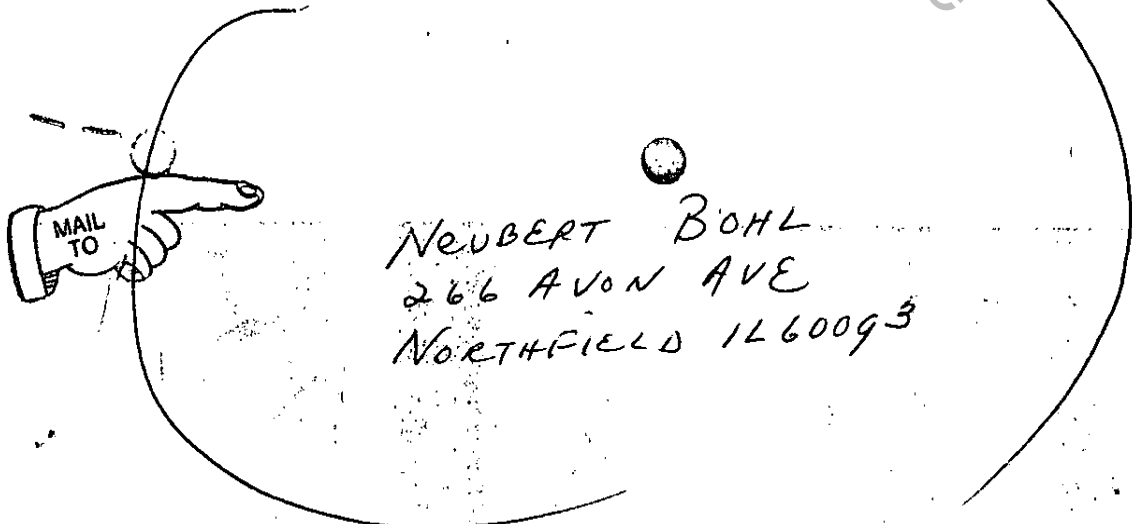 MAIL
TO
NEUBERT BOHL
266 AVON AVE
NORTHFIELD IL 60093